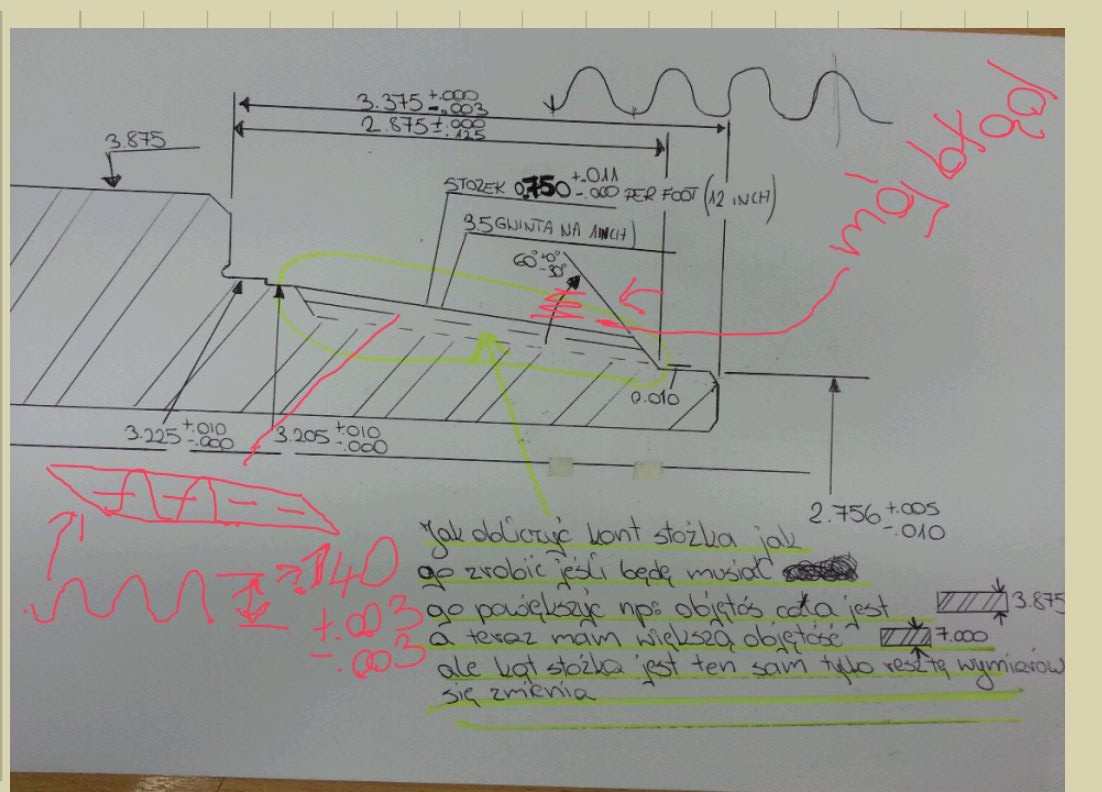 3.375 +.000 -.003
2.875 +.000 -.125
3.875
STOZEK 0.750 +.011 -.000 PER FOOT (12 INCH)
3.5 GWINTA NA 1 INCH)
60° +0° -30°
0.010
3.225 +.010 -.000
3.205 +.010 -.000
2.756 +.005 -.010
.140
+.003
-.003
Jak obliczyć kont stożka jak
go zrobić jeśli będę musiał
go powiększyć np: objętoś cała jest 3.875
a teraz mam większą objętość 7.000
ale kąt stożka jest ten sam tylko resztę wymiarów
się zmienia